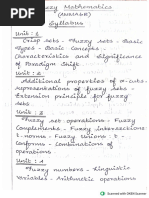 Fuzzy Mathematics
(MUMA6K)
Syllabus
Unit : 1
Crisp sets - Fuzzy sets - Basic
Types - Basic Concepts
Characteristics and Significance
of Paradigm Shift
Unit : 2
Additional properties of α-cuts
representations of Fuzzy sets
Extension principle for Fuzzy
sets
Unit : 3
Fuzzy set operations - Fuzzy
Complements - Fuzzy intersections
t-norms - Fuzzy Unions t-
Conforms - Combinations of
operations
Unit : 4
Fuzzy numbers - Linguistic
Variables - Arithmetic operations
Scanned with OKEN Scanner